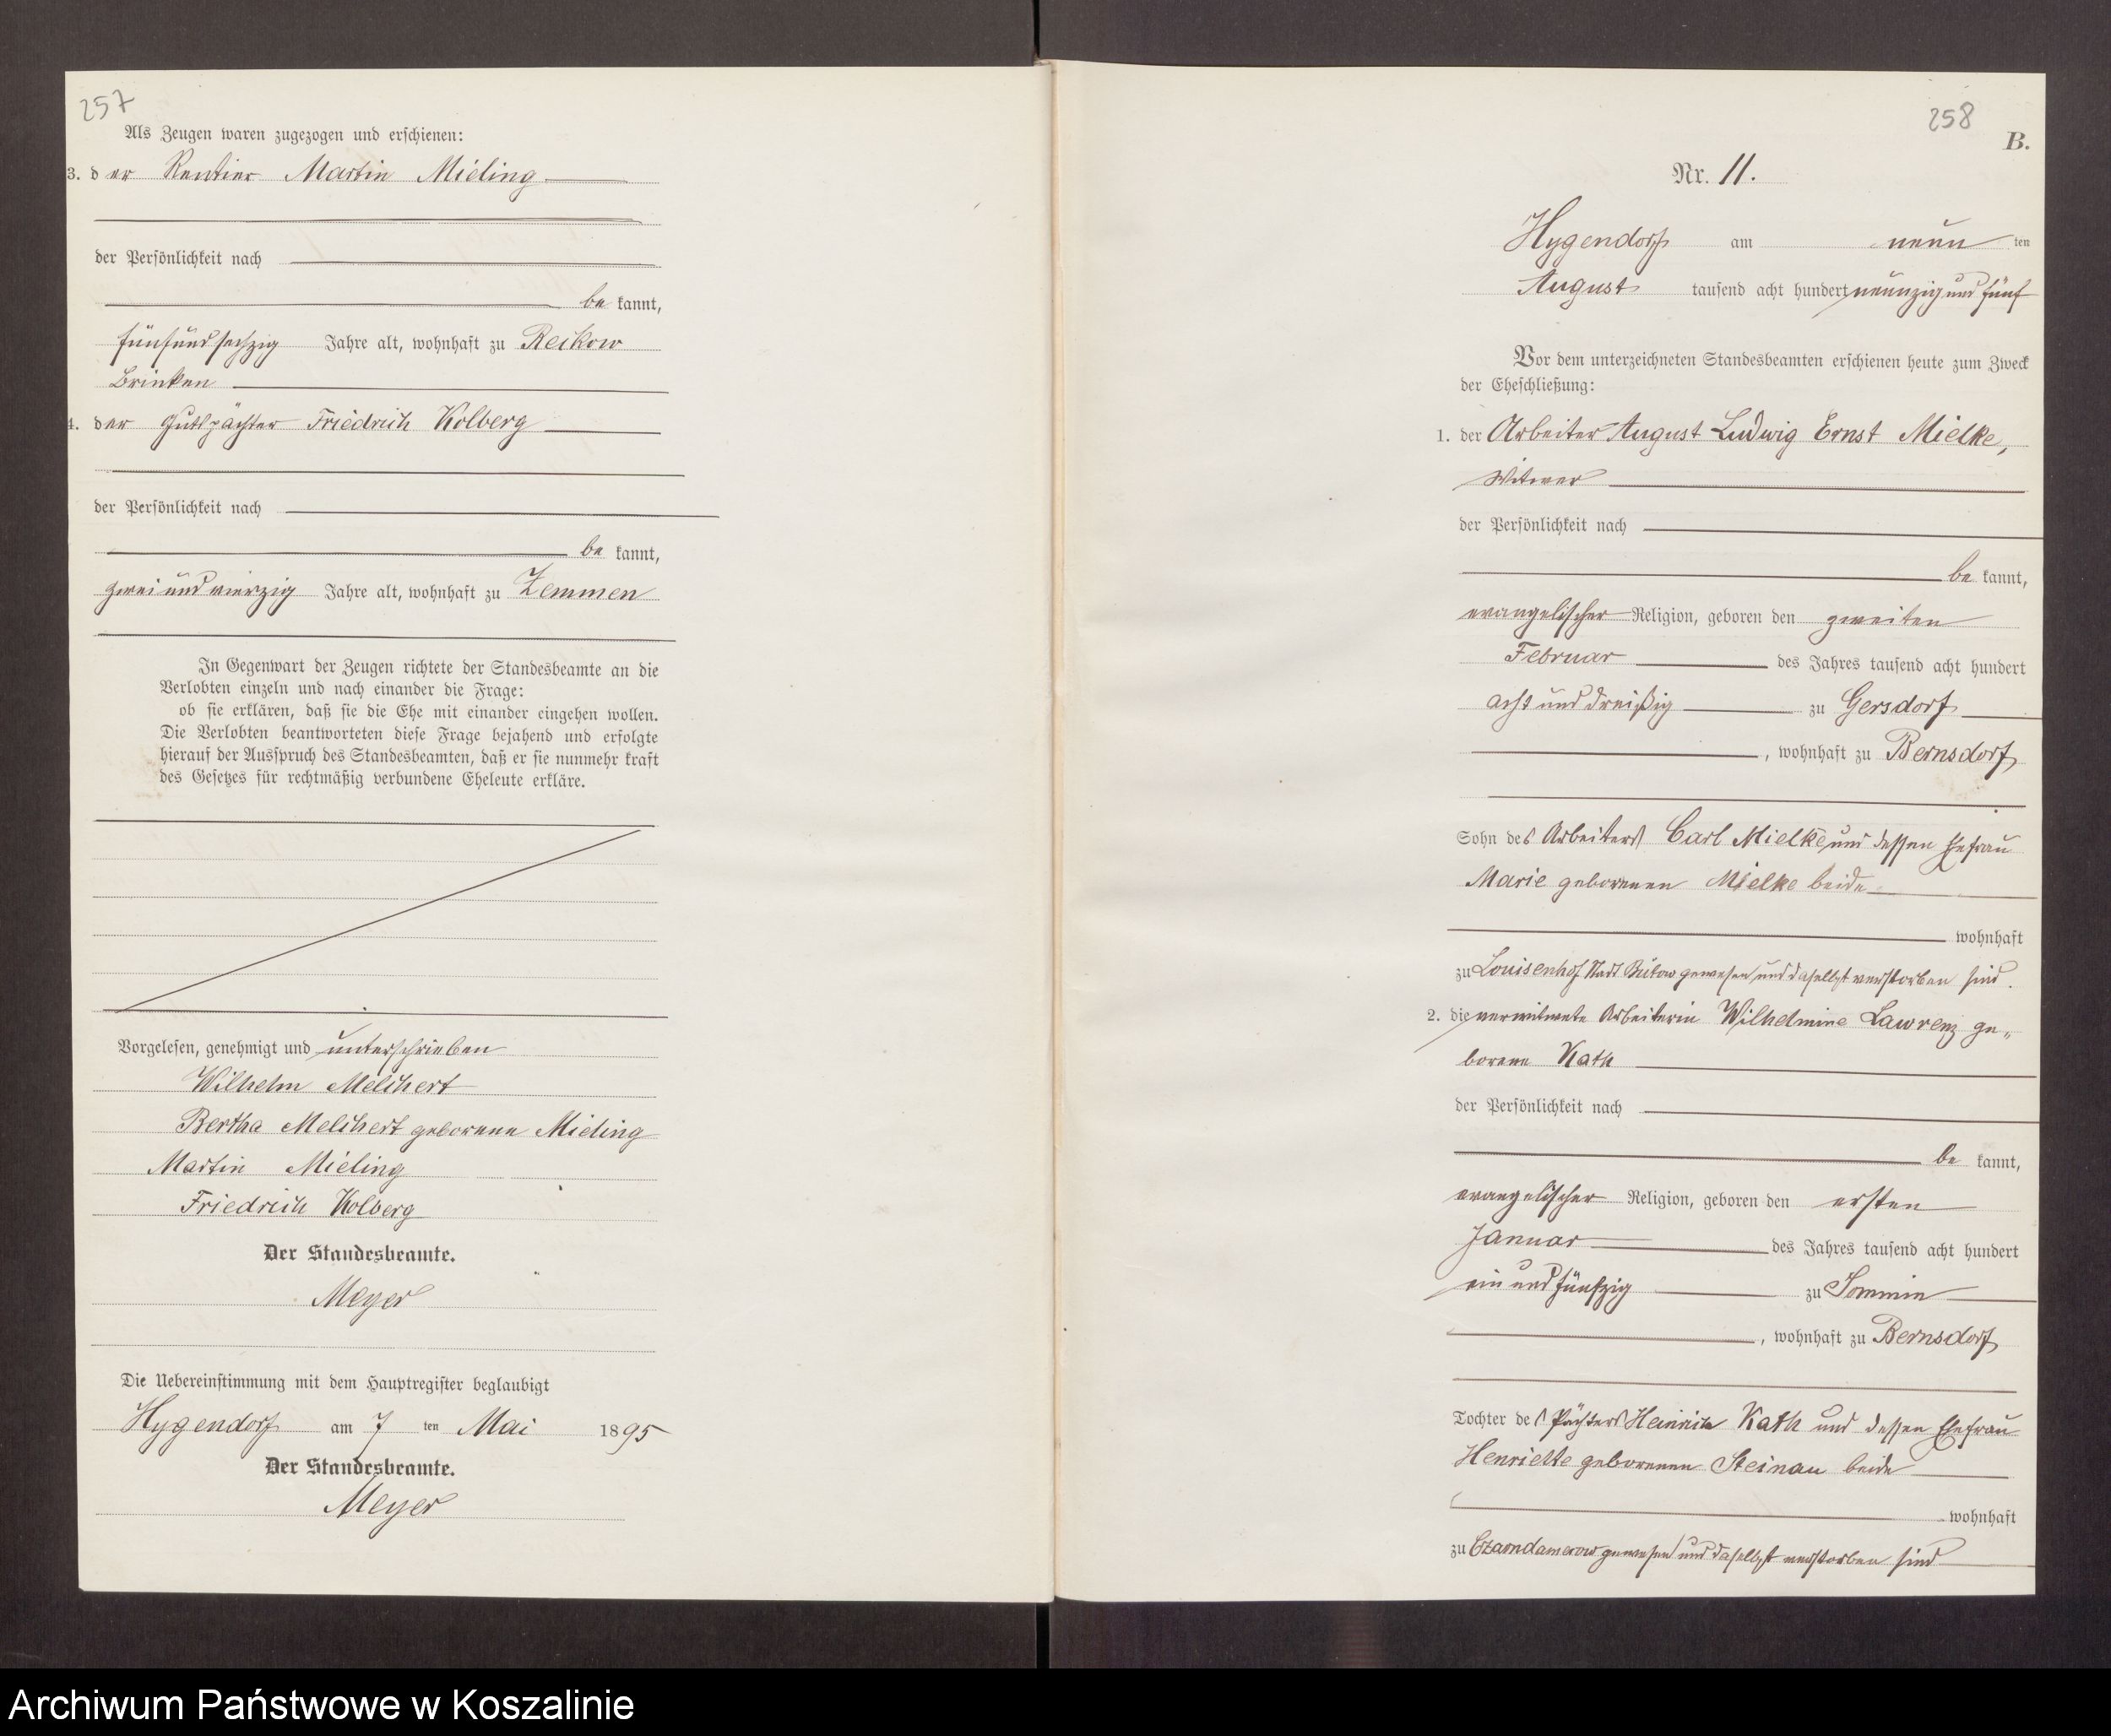 257
Als Zeugen waren zugezogen und erschienen:
3. der Rentier Martin Mieling
der Persönlichkeit nach
be kannt,
fünfundsechzig Jahre alt, wohnhaft zu Reckow
Brinken
4. der Gutspächter Friedrich Kolberg
der Persönlichkeit nach
be kannt,
zwei und vierzig Jahre alt, wohnhaft zu Zemmen
In Gegenwart der Zeugen richtete der Standesbeamte an die
Verlobten einzeln und nach einander die Frage:
ob sie erklären, daß sie die Ehe mit einander eingehen wollen.
Die Verlobten beantworteten diese Frage bejahend und erfolgte
hierauf der Ausspruch des Standesbeamten, daß er sie nunmehr kraft
des Gesetzes für rechtmäßig verbundene Eheleute erkläre.
Vorgelesen, genehmigt und unterschrieben
Wilhelm Melchert
Bertha Melchert geborene Mieling
Martin Mieling
Friedrich Kolberg
Der Standesbeamte.
Meyer
Die Uebereinstimmung mit dem Hauptregister beglaubigt
Hygendorf am 7 ten Mai 1895
Der Standesbeamte.
Meyer
258
B.
Nr. 11.
Hygendorf am neun ten
August tausend acht hundert neunzig und fünf
Vor dem unterzeichneten Standesbeamten erschienen heute zum Zweck
der Eheschließung:
1. der Arbeiter August Ludwig Ernst Mielke,
Witwer
der Persönlichkeit nach
be kannt,
evangelischer Religion, geboren den zweiten
Februar des Jahres tausend acht hundert
acht und dreißig zu Gersdorf
, wohnhaft zu Bernsdorf
Sohn des Arbeiters Carl Mielke und dessen Ehefrau
Marie geborenen Mielke beide
wohnhaft
zu Louisenhof Stadt Bütow gewesen und daselbst verstorben sind.
2. die verwitwete Arbeiterin Wilhelmine Lawrenz ge-
borene Kath
der Persönlichkeit nach
be kannt,
evangelischer Religion, geboren den ersten
Januar des Jahres tausend acht hundert
ein und fünfzig zu Sommin
, wohnhaft zu Bernsdorf
Tochter des Pächters Heinrich Kath und dessen Ehefrau
Henriette geborenen Steinau beide
wohnhaft
zu Czarndamerow gewesen und daselbst verstorben sind
Archiwum Państwowe w Koszalinie